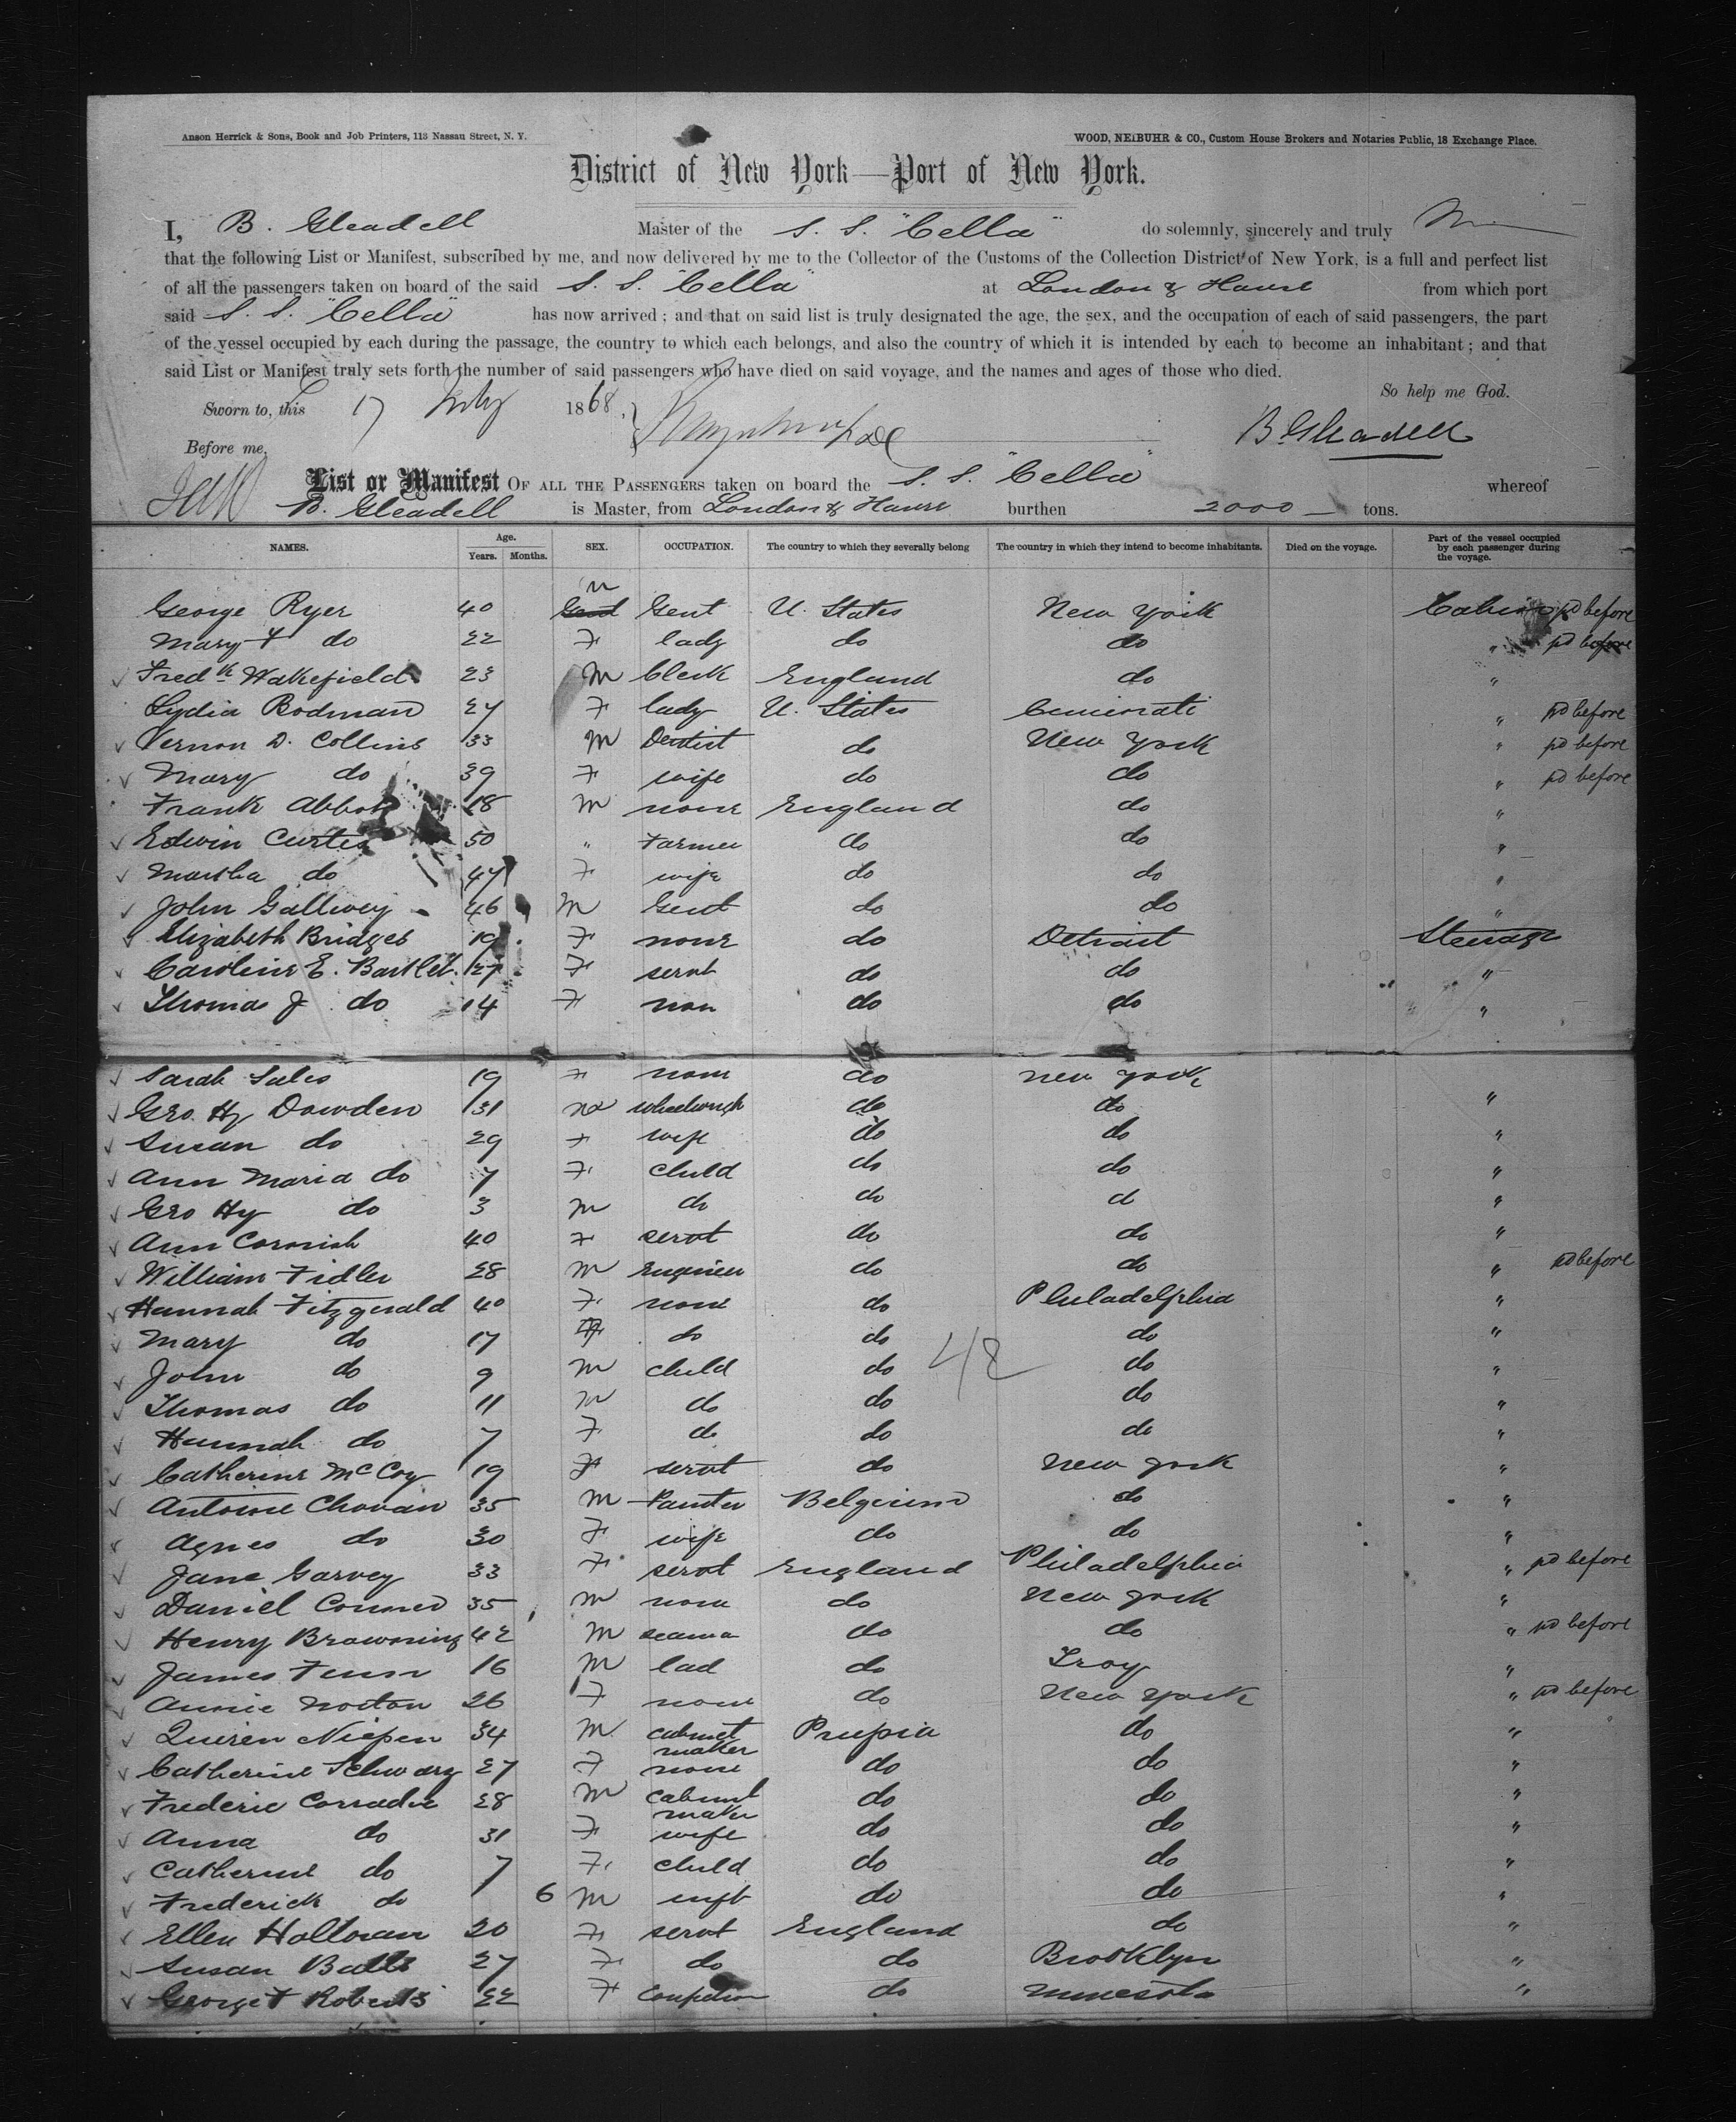 Anson Herrick & Sons, Book and Job Printers, 113 Nassau Street, N. Y.
WOOD, NEIBUHR & CO., Custom House Brokers and Notaries Public, 18 Exchange Place.
District of New York—Port of New York.
I, B. Gleadell Master of the S. S. "Cella" do solemnly, sincerely and truly
that the following List or Manifest, subscribed by me, and now delivered by me to the Collector of the Customs of the Collection District of New York, is a full and perfect list
of all the passengers taken on board of the said S. S. "Cella" at London & Havre from which port
said S. S. "Cella" has now arrived; and that on said list is truly designated the age, the sex, and the occupation of each of said passengers, the part
of the vessel occupied by each during the passage, the country to which each belongs, and also the country of which it is intended by each to become an inhabitant; and that
said List or Manifest truly sets forth the number of said passengers who have died on said voyage, and the names and ages of those who died.
So help me God.
Sworn to, this 17 July 1868.
B. Gleadell
Before me,
List or Manifest OF ALL THE PASSENGERS taken on board the S. S. "Cella" whereof
B. Gleadell is Master, from London & Havre burthen 2000 tons.
NAMES. Age. Years. Months. SEX. OCCUPATION. The country to which they severally belong The country in which they intend to become inhabitants. Died on the voyage. Part of the vessel occupied by each passenger during the voyage.
George Ryer 40 Gent m Gent U. States New York Cabin pd before
Mary F do 22 F lady do do " pd before
Fredk Wakefield 23 M Clerk England do "
Lydia Bodman 27 F lady U. States Cincinati " pd before
Vernon D. Collins 33 M Dentist do New York " pd before
Mary do 39 F wife do do " pd before
Frank Abbott 18 M none England do "
Edwin Curtes 50 " Farmer do do "
Martha do 47 F wife do do "
John Gallwey 46 M Gent do do "
Elizabeth Bridges 19 F none do Detroit Steerage
Caroline E. Bartlet 27 F servt do do "
Thomas J do 14 F non do do "
Sarah Sales 19 F none do New York
Geo. Hy Dowden 31 m wheelwrigh do do "
Susan do 29 F wife do do "
Ann Maria do 7 F child do do "
Geo Hy do 3 M do do d "
Ann Cornish 40 F servt do do "
William Fidler 28 M Engineer do do " pd before
Hannah Fitzgerald 40 F none do Philadelphia "
Mary do 17 F do do do "
John do 9 M child do 48 do "
Thomas do 11 M do do do "
Hannah do 7 F do do do "
Catherine McCoy 19 F servt do New York "
Antoine Chovan 35 M Painter Belgium do "
Agnes do 30 F wife do do "
Jane Garvey 33 F servt England Philadelphia " pd before
Daniel Conner 35 M none do New York "
Henry Browning 42 M seama do do " pd before
James Fenn 16 M lad do Troy "
Annie Norton 26 F none do New York " pd before
Quiren Niepen 34 M cabinet maker Prussia do "
Catherine Schwarz 27 F none do do "
Frederic Corradie 28 M cabinet maker do do "
Anna do 31 F wife do do "
Catherine do 7 F child do do "
Frederick do 6 M inft do do "
Ellen Holloran 20 F servt England do "
Susan Balls 27 F do do Brooklyn "
George F Roberts 22 F do Minesota "